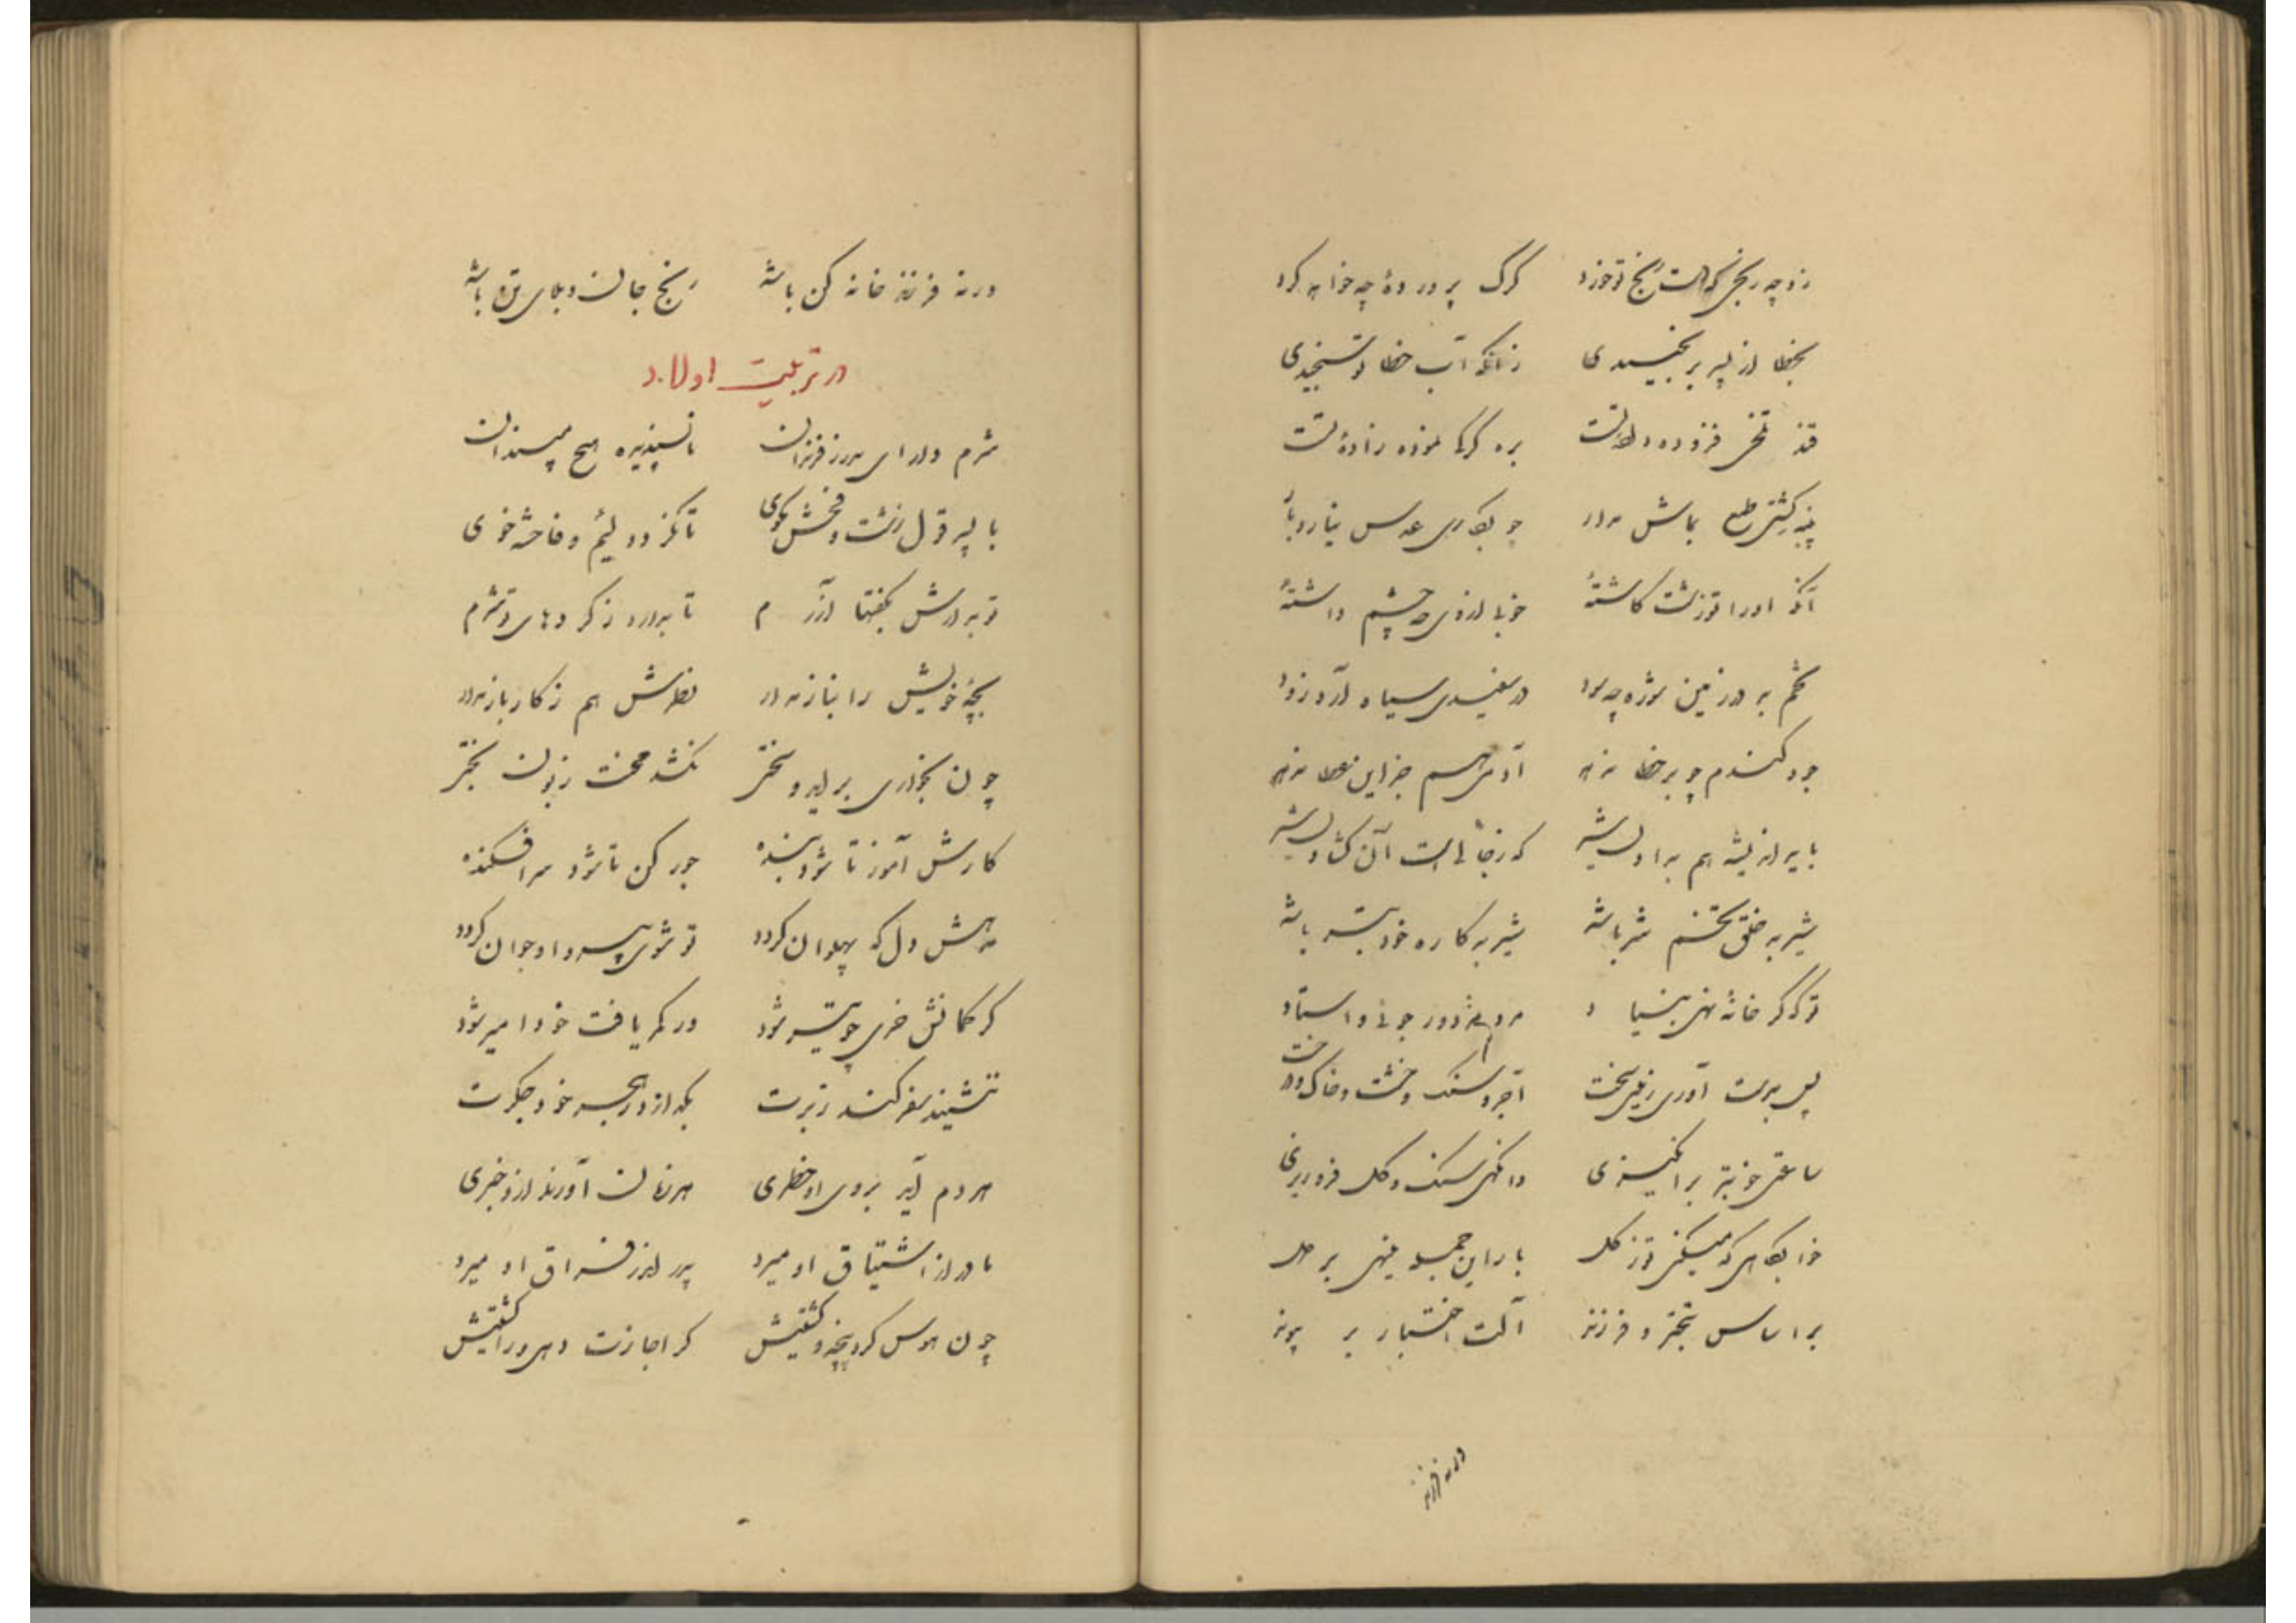 زو چه رنجی که هست رنج تو خرد گرگ پرورده چه خواهد کرد
بخطا از پسر برنجیدی زانکه آب خطا تو سنجیدی
قند تلخی فزوده دادتست بره گرگی نموده زاده تست
پنبه کشتی طمع بماش مدار چو بکاری عدس نیارد بار
آنکه او را تو زشت کاشتهٔ خوبی از وی چه چشم داشتهٔ
تخم بد در زمین شوره چه سود در سفیدی سیاه آرد زود
جو و گندم چو بر خطا ندهد آدمی هم جز این عطا ندهد
باید اندیشه هم به اول بیشه که زجائیست آن گشاد
شیر به خلق تخم شر باشد شیر به کاره خود بتر باشد
تو که گر خانهٔ نهی بنیاد مرد مزدور جوئی و استاد
پس بدست آوری زغیرت سخت آجر و سنگ و خشت و خاک و درخت
ساعتی خوبتر برانگیزی وانگهی سنگ و گل فروریزی
خوابگاهی که میکنی تو ز گل بار این جمله مینهی بر دل
بر اساس تخمهٔ فرزند آلت اختیار بر پیوند
ورنه فرزند
ورنه فرزند خانه کن باشد رنج جان و بلای تن باشد
در تربیت اولاد
شرم دار ای پدر ز فرزندان ناپسندیده هیچ مپسند آن
با پسر قول زشت و فحش مگوی تا نگردد لئیم و فاحشه خوی
تو بدارش بگفتها آزرم تا بدارد ز کردهای تو شرم
بچهٔ خویش را بناز مدار نظرش هم ز کار باز مدار
چون بخواری بر آید و سختی نکشد محنت زبون بختی
کارش آموز تا شود بنده جور کن تا شود سرافکنده
مدهش دل که پهلوان گردد تو شوی پیر و او جوان گردد
گر کمانش خری چو تیر شود ور کمر یافت خود امیر شود
ننشیند سفر کند ز برت بگدازد ز هجر خود جگرت
هر دم آید بروی او خطری هر زمان آورند ازو خبری
مادر از اشتیاق او میرد پدر اندر فراق او میرد
چون هوس کرد پنجه و کشتیش گر اجازت دهی ور